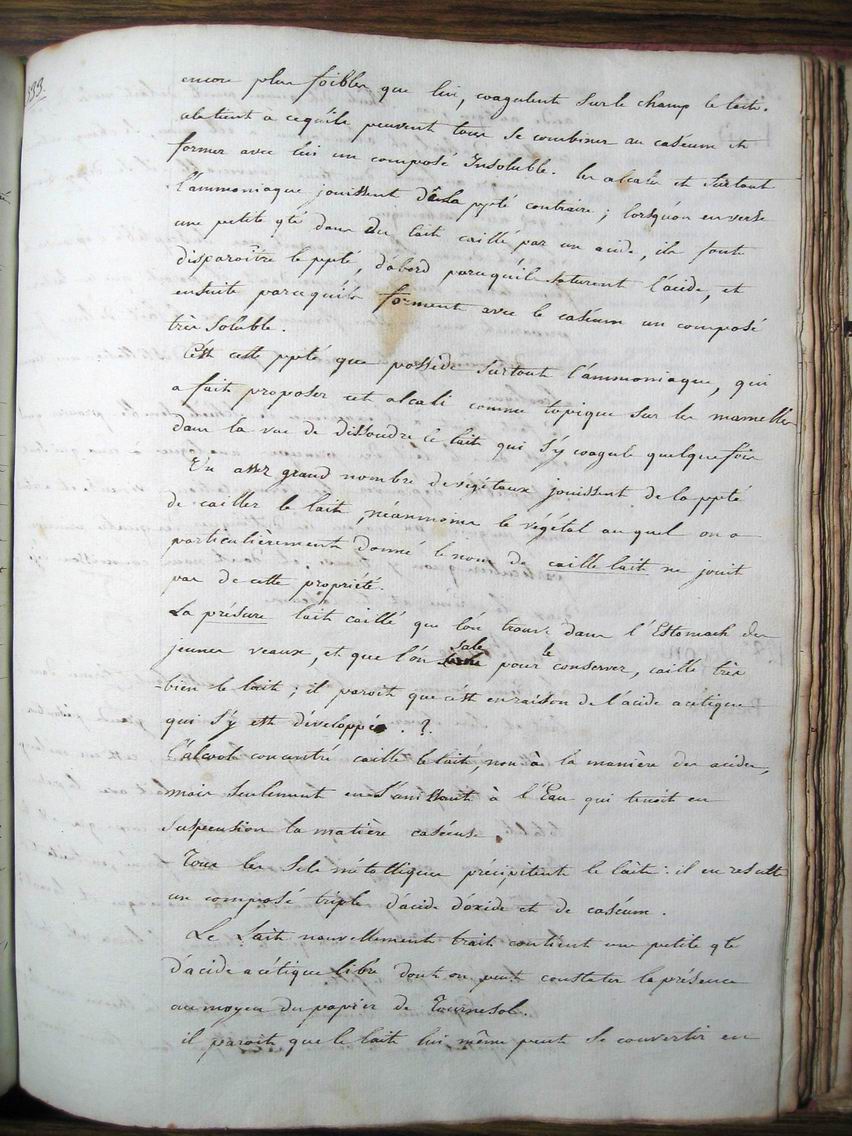 333.
encore plus foibles que lui, coagulent sur le champ le lait.
cela tient a cequ'ils peuvent tous se combiner au caséum et
former avec lui un composé Insoluble. les alcalis et surtout
l'ammoniaque jouissent de la ppté contraire; lorsquon en verse
une petite qté dans du lait caillé par un acide, ils font
disparoitre le ppté, d'abord parcequ'ils saturent l'acide, et
ensuite parcequ'ils forment avec le caséum un composé
très soluble.
C'est cette ppté que possède surtout l'ammoniaque, qui
a fait proposer cet alcali comme topique sur les mamelles
dans la vue de dissoudre le lait qui s'y coagule quelque fois
Un assez grand nombre de végétaux jouissent de la ppté
de cailler le lait, néanmoins le végétal au quel on a
particulièrement donné le nom de caille lait ne jouit
pas de cette propriété.
La présure lait caillé que l'on trouve dans l'Estomach des
jeunes veaux, et que l'on sale pour le conserver, caille très
bien le lait; il paroit que c'est en raison de l'acide acétique
qui s'y est développé. ?.
l'alcool concentré caille le lait, non à la manière des acides,
mais seulement en s'unissant à l'Eau qui tenoit en
suspension la matière caséuse.
Tous les sels métalliques précipitent le lait: il en resulte
un composé triple d'acide d'oxide et de caséum.
Le Lait nouvellement trait contient une petite qté
d'acide acétique libre dont on peut constater la présence
au moyen du papier de Tournesol.
il paroit que le lait lui même peut se convertir en